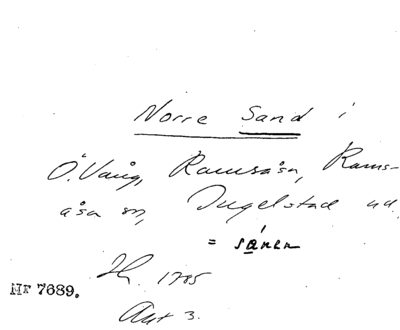 Norre Sand i
Ö. Vång, Ramsåsa, Rams-
åsa sn, Ingelstad hd.
= sánen
1785
MF 7689.
Akt 3.